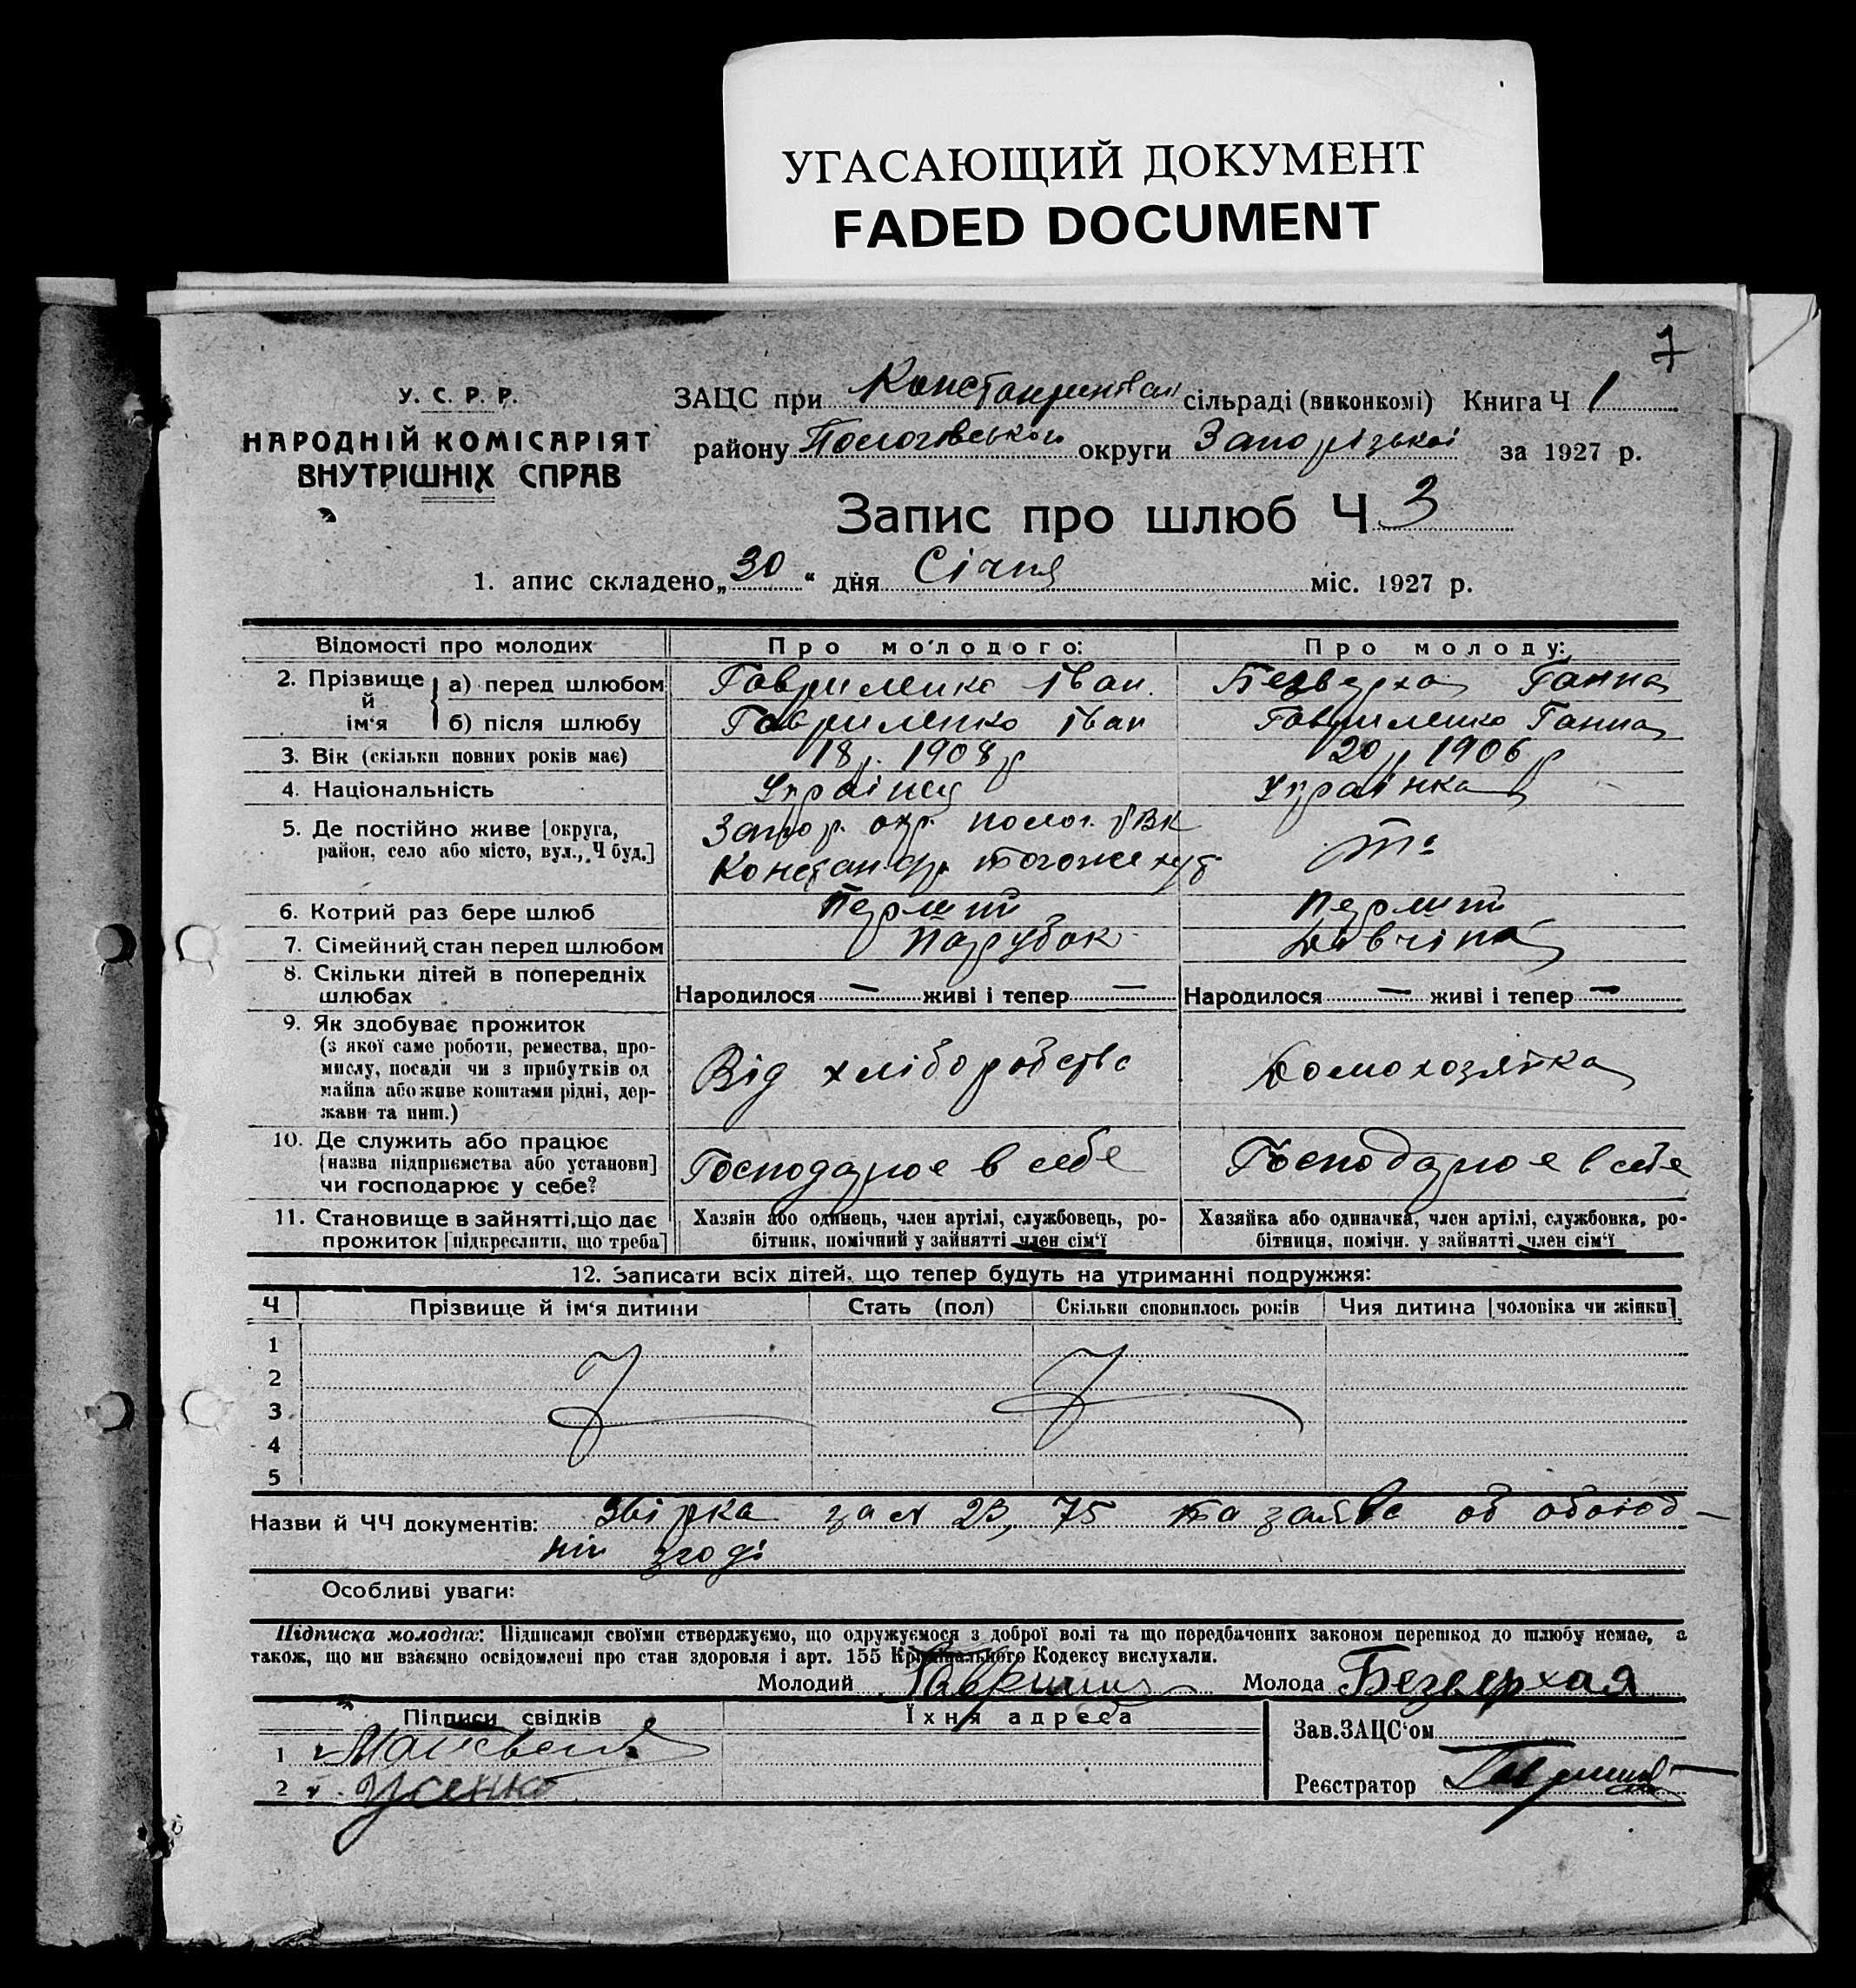 УГАСАЮЩИЙ ДОКУМЕНТ
FADED DOCUMENT
7
У. С. Р. Р.
НАРОДНІЙ КОМІСАРІЯТ
ВНУТРІШНІХ СПРАВ
ЗАЦС при сільраді (виконкомі) Книга Ч 1
району Пологівського округи Запорізької за 1927 р.
Запис про шлюб Ч 3
1. апис складено „30“ дня Січня міс. 1927 р.
Відомості про молодих Про молодого: Про молоду:
2. Прізвище й ім‘я а) перед шлюбом Гавриленко Іван Безверха Ганна
б) після шлюбу Гавриленко Іван Гавриленко Ганна
3. Вік (скільки повних років має) 18 р. 1908 р 20 р 1906 р
4. Національність Українец Українка
5. Де постійно живе [округа, Запор. окр. полог. РВК
район, село або місто, вул., Ч буд.] тогоже то
6. Котрий раз бере шлюб Перший Перший
7. Сімейний стан перед шлюбом Парубок Дівчіна
8. Скільки дітей в попередніх
шлюбах Народилося — живі і тепер — Народилося — живі і тепер —
9. Як здобуває прожиток
(з якої саме роботи, ремества, про-
мислу, посади чи з прибутків од Від хліборобства Домохозяйка
майна або живе коштами рідні, дер-
жави та инш.)
10. Де служить або працює
[назва підприємства або установи] Господарює в себе Господарює в себе
чи господарює у себе?
11. Становище в зайнятті, що дає Хазяїн або одинець, член артілі, службовець, ро- Хазяйка або одиначка, член артілі, службовка, ро-
прожиток [підкреслити, що треба] бітник, помічний у зайнятті член сім‘ї бітниця, помічн. у зайнятті член сім‘ї
12. Записати всіх дітей, що тепер будуть на утриманні подружжя:
Ч Прізвище й ім‘я дитини Стать (пол) Скільки сповнилось років Чия дитина [чоловіка чи жінки]
1
2
3
4
5
Назви й ЧЧ документів: Звірка за № 23, 75 та заява об обоюд-
ній згоді
Особливі уваги:
Підписка молодих: Підписами своїми стверджуємо, що одружуємося з доброї волі та що передбачених законом перешкод до шлюбу немає, а
також, що ми взаємно освідомлені про стан здоровля і арт. 155 Крімінального Кодексу вислухали.
Молодий Молода Безверхая
Підписи свідків Їхня адреса
Зав.ЗАЦС‘ом
1
2 Усенко
Реєстратор